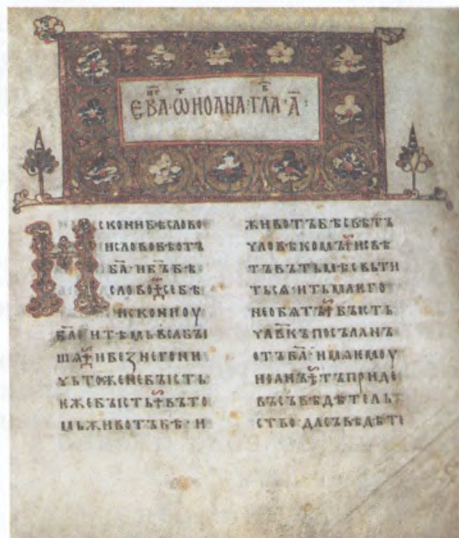 ЕВА҃·Ѡ҃ИОАНА·ГЛА҃·А҃·
ИСКОНИБѢСЛОВО
ИСЛОВОБѢОТЪ
БА҃·ИБЪ҃БѢ
СЛОВО⁘СЕБѢ
ИСКОНИОУ
БА҃·ИТѢМЬВЬСАБЫ
ШѦ⁘ИБЕЗНЕГОНИ
ЧЬТОЖЕНЕБЫСТЬ
ЕЖЕБЫСТЬ⁘ВЪТО
МЬЖИВОТЪБѢ·И
ЖИВОТЪБѢСВѢТЪ
ЧЛОВѢКОМЪ⁘ИСВѢ
ТЪВЪТЬМѢСВЬТИ
ТЬСѦ·ИТЬМАѤГО
НЕОБѦТЪ⁘БЫСТЬ
ЧЛ҃ВКЪПОСЪЛАНЪ
ОТЪБА҃·ИМѦѤМОУ
ИОАНЪ⁘ТЪПРИДЕ
ВЪСЪВѢДѢТЕЛЬ
СТВО·ДАСЪВѢДѢТЕ